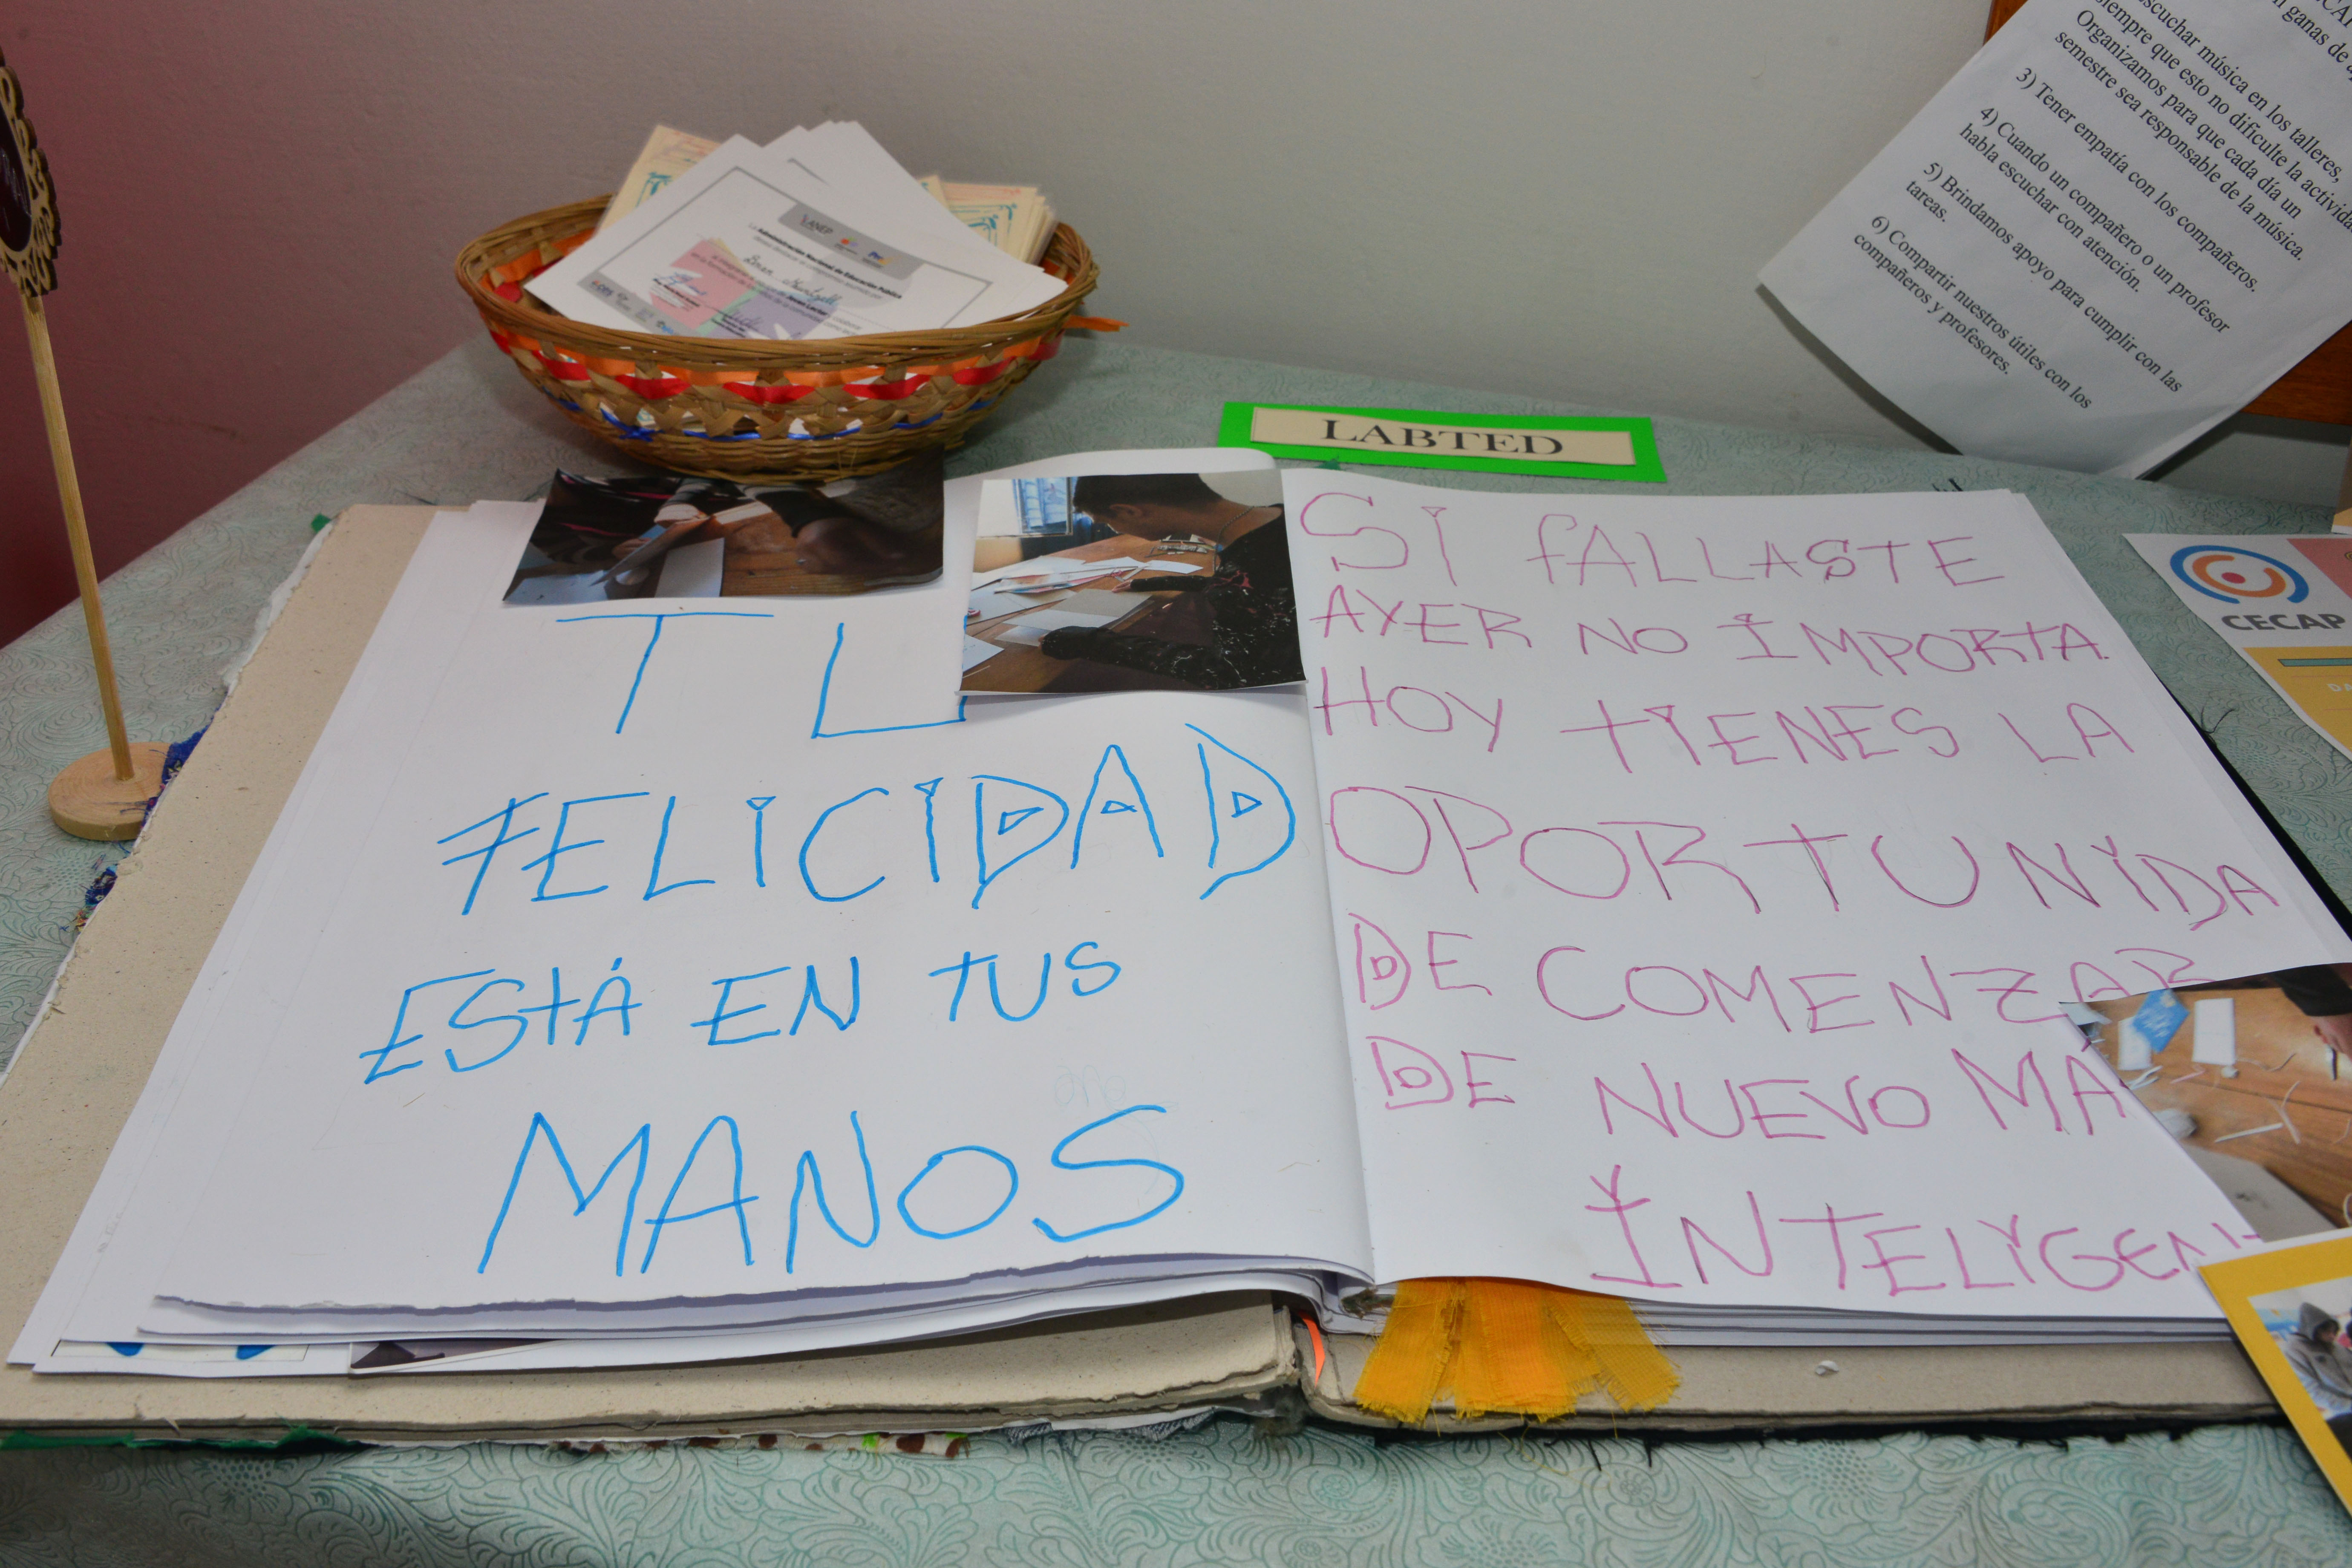 escuchar música en los talleres,
siempre que esto no dificulte la activida
Organizamos para que cada día un
semestre sea responsable de la música.
3) Tener empatía con los compañeros.
4) Cuando un compañero o un profesor
habla escuchar con atención.
5) Brindamos apoyo para cumplir con las
tareas.
6) Compartir nuestros útiles con los
compañeros y profesores.
ANEP
La Administración Nacional de Educación Pública
LABTED
CECAP
TU
FELICIDAD
ESTÁ EN TUS
MANOS
SI fALLASTE
AYER NO IMPORTA
HOY TIENES LA
OPORTUNIDA
DE COMENZAR
DE NUEVO MÁ
INTELYGENT